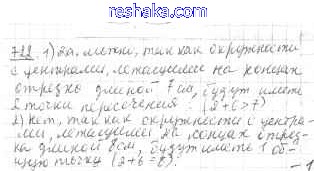 reshaka.com
722. 1) Да, можно, так как окружности
с центрами, лежащими на концах
отрезка длиной 7 см, будут иметь
2 точки пересечения. (2+6>7)
2) нет, так как окружности с центра-
ми, лежащими на концах отрез-
ка длиной 8 см, будут иметь 1 об-
щую точку (2+6=8).